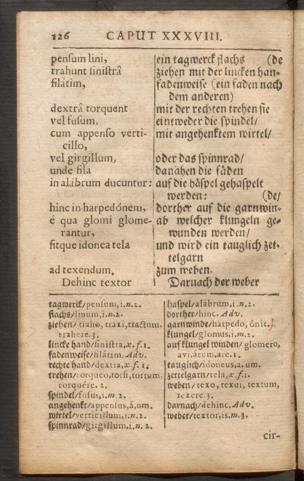 126 CAPUT XXXVIII.
pensum lini, ein tagwerck flachs (de
trahunt sinistrâ ziehen mit der lincken han-
filâtim, fadenweise (ein faden nach
dem anderen)
dextrâ torquent mit der rechten trehen sie
vel fusum, eintweder die spindel/
cum appenso verti- mit angehenktem wirtel/
cillo,
vel girgillum, oder das spinnrad/
unde fila danahen die fäden
in alabrum ducuntur: auf die häspel gehaspelt
werden: (de/
hinc in harpedónem, dorther auf die garnwin-
é qua glomi glome- ab welcher klungeln ge-
rantur, wunden werden/
fitque idonea tela und wird ein tauglich zet-
telgarn
ad texendum. zum weben.
Dehinc textor Darnach der weber
tagwerck/pensum, i. n. 2.
flachs/linum, i. n. 2.
ziehen/traho, traxi, tractum,
trahere. 3.
lincke hand/sinistra, æ. f. 1.
fadenweise/filâtim. Adv.
rechte hand/dextra, æ. f. 1.
trehen/torqueo, torsi, tortum,
torquére. 2.
spindel/fusus, i. m. 2.
angehenkt/appensus, a, um.
wirtel/verticillus, i. m. 2.
spinnrad/girgillum, i. n. 2.
haspel/alâbrum, i. n. 2.
dorther/hinc. Adv.
garnwinde/harpedo, ónis, f.
klungel/glomus, i. m. 2.
auf klungel winden/glomero,
avi, átum, are. 1.
tauglich/idoneus, a, um.
zettelgarn/tela, æ. f. 1.
weben/texo, texui, textum,
texere. 3.
darnach/dehinc. Adv.
weber/textor, is. m. 3.
cir-